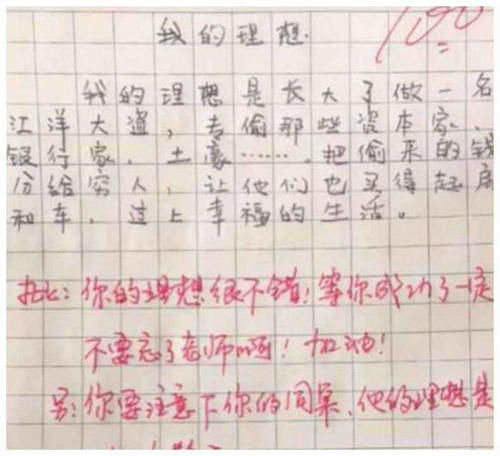 我的理想.
100
我的理想是长大了做一名
江洋大盗，专偷那些资本家、
银行家、土豪……。把偷来的钱
分给穷人，让他们也买得起房
和车，过上幸福的生活。
批: 你的理想很不错! 等你成功了一定
不要忘了老师啊! 加油!
另: 你要注意下你的同桌, 他的理想是